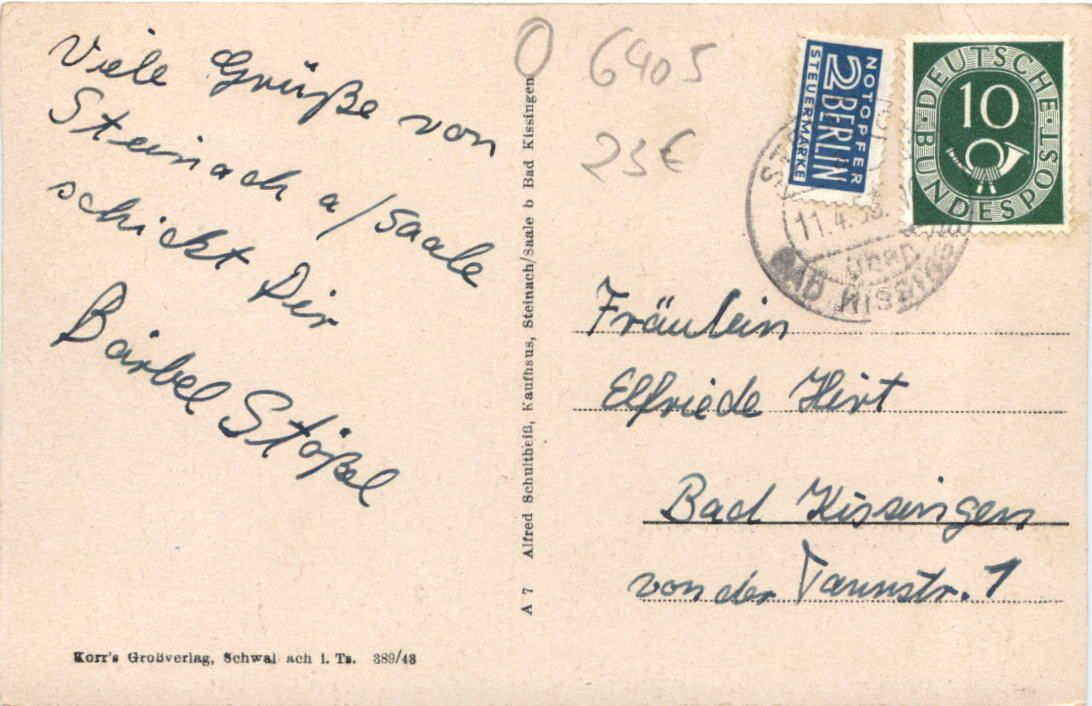 Viele Grüße von
Steinach a/Saale
schickt Dir
Bärbel Stößel
Korr's Großverlag, Schwal ach i. Ts. 389/43
A 7 Alfred Schultheiß, Kaufhaus, Steinach/Saale b Bad Kissingen
0 6405
23€
NOTOPFER
2 BERLIN
STEUERMARKE
DEUTSCHE
10
BUNDESPOST
11.4.
über
BAD KISSINGEN
Fräulein
Elfriede Hirt
Bad Kissingen
von der Tannstr. 1